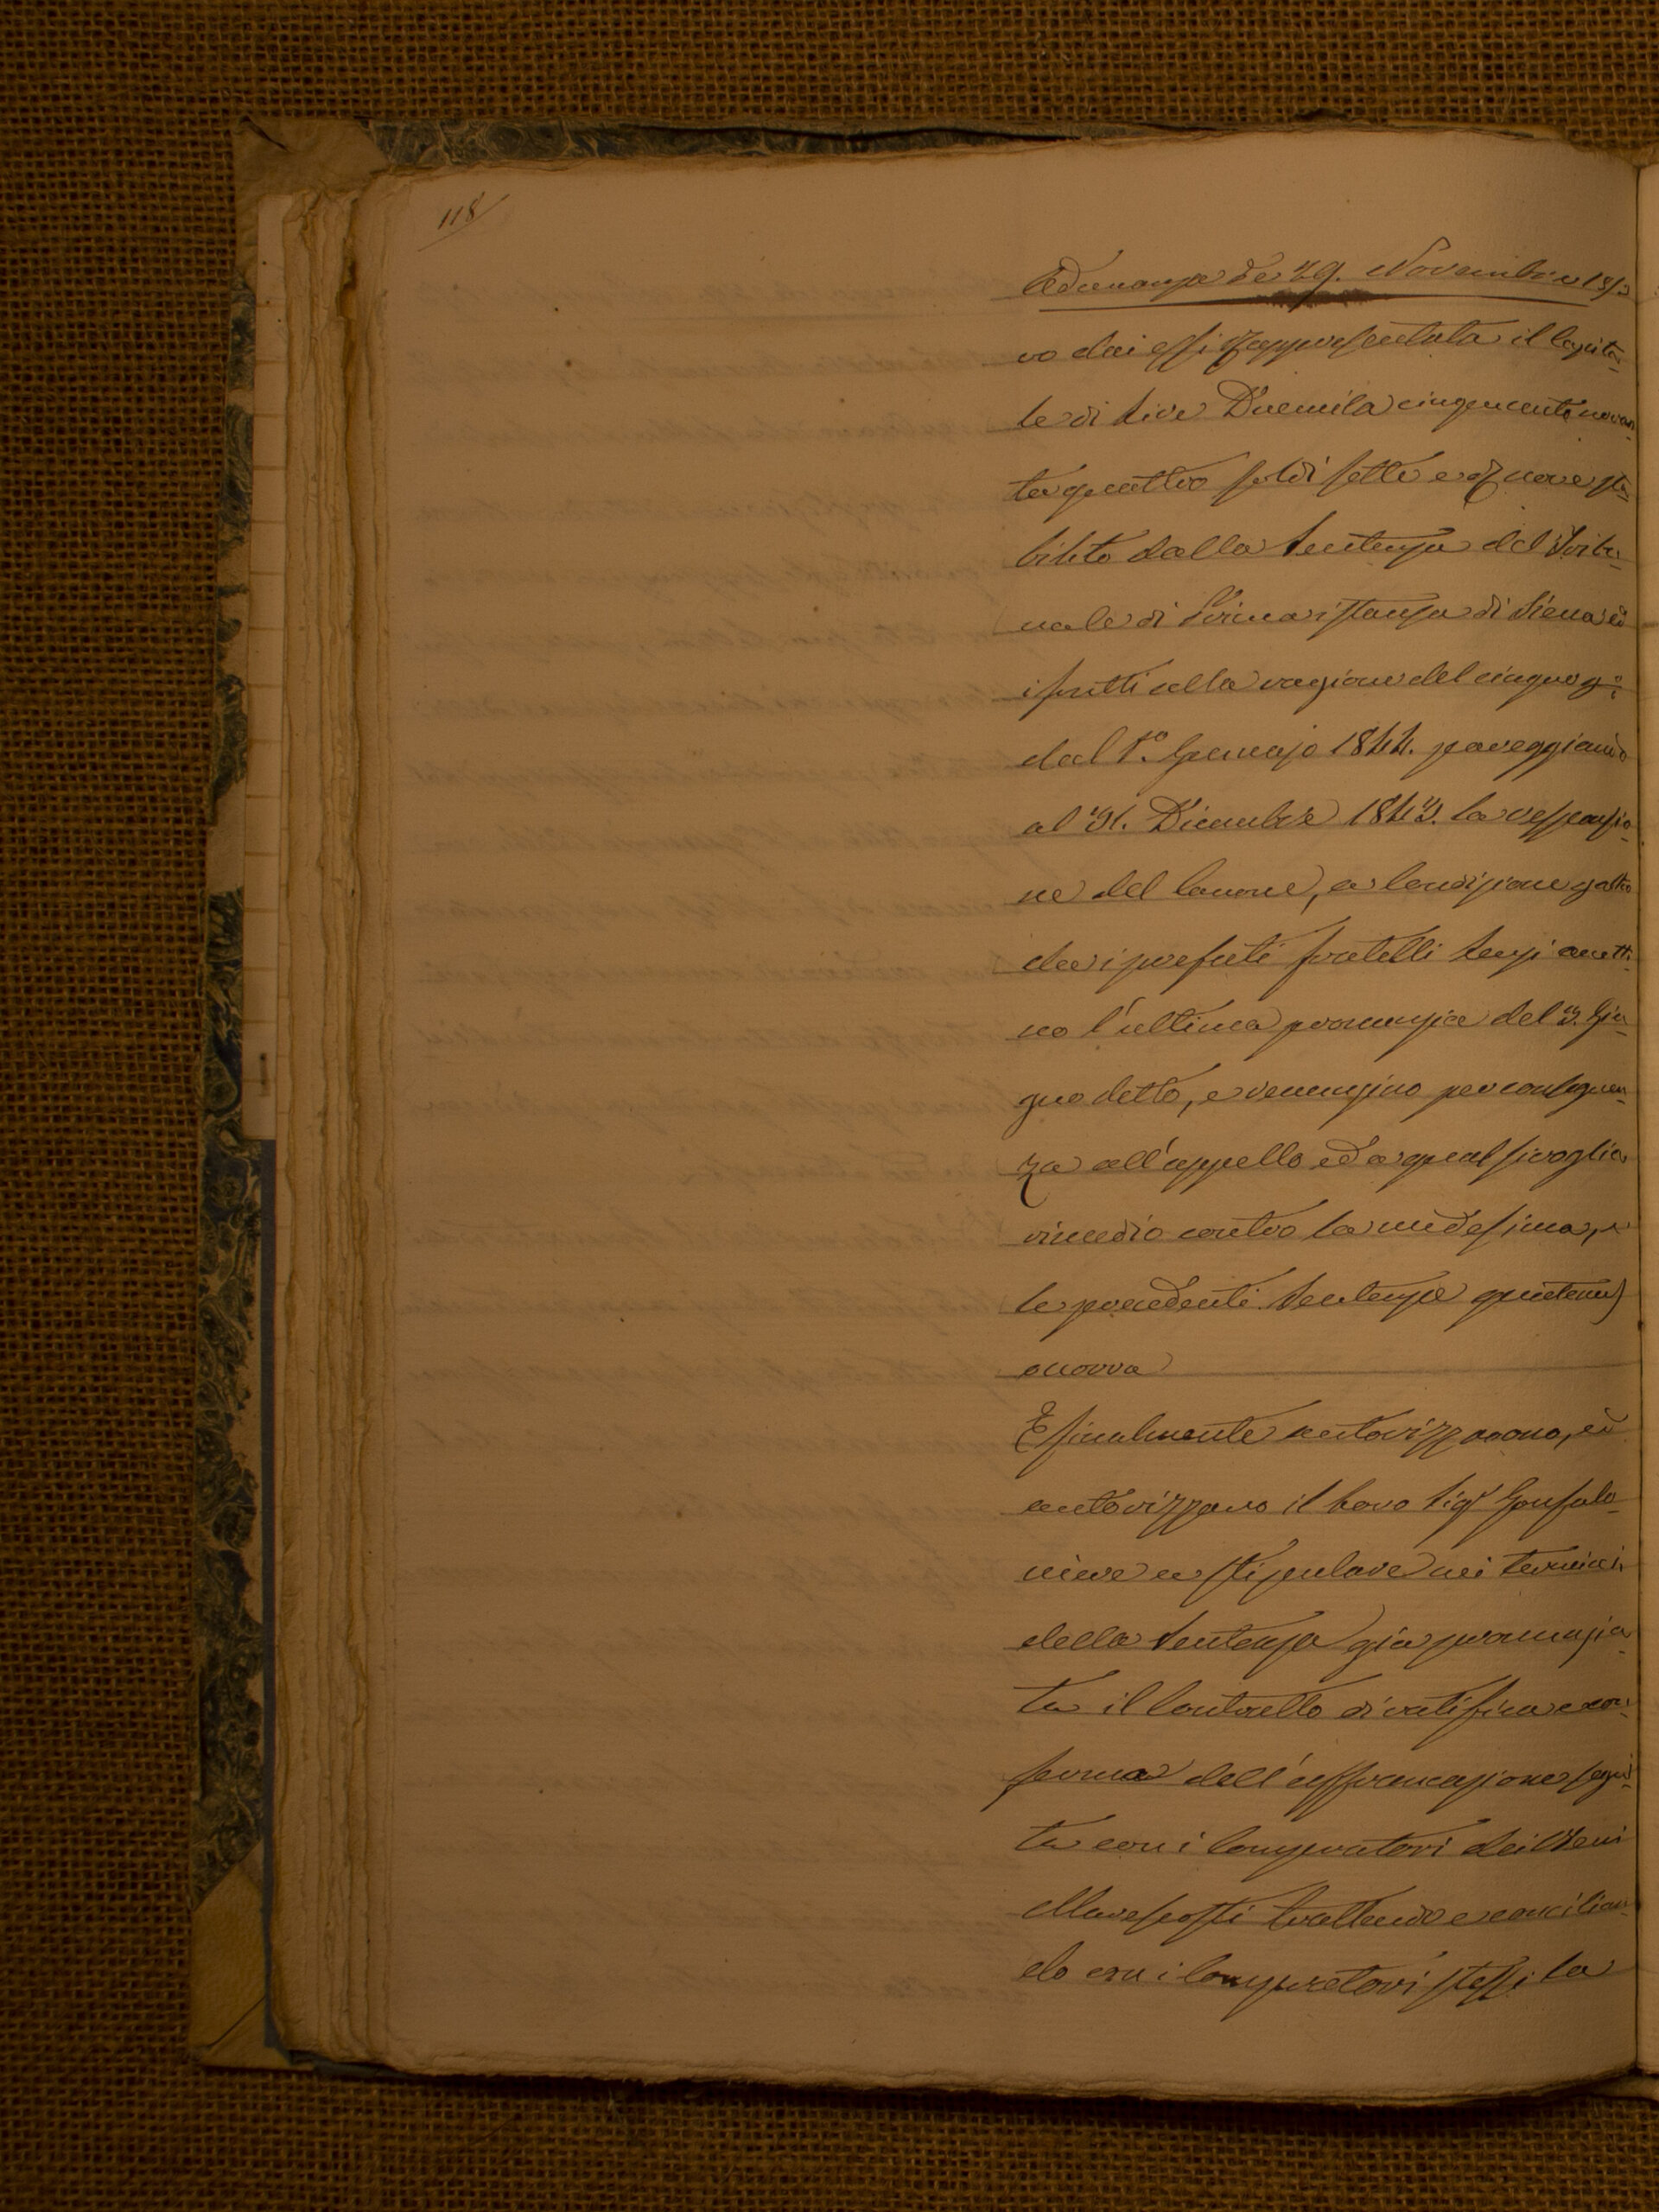 118
Adunanza de 29. Novembre 185
ro dai essi rappresentata il Capita-
le di Lire Duemila cinquecento novan-
taquattro soldi sette e d nove sta-
bilito dalla Sentenza del Tribu-
nale di Prima istanza di Siena ed
i frutti alla ragione del cinque p.%
dal 1.° Gennajo 1844. pareggiando
al 31. Dicembre 1843. la responsio-
ne del Canone, a Condizione p altro
che i prefati fratelli Renzi accetti-
no l'ultima pronunzia del 3. Giu-
gno detto, e renunzino per conseguen-
za all'appello ed a qualsivoglia
rimedio contro la medesima, e
le precedenti Sentenze quatenus
occorra
E finalmente autorizzarono, ed
autorizzano il loro Sig.r Gonfalo-
niere a stipulare nei termini
della Sentenza già pronunzia-
ta il Contratto di ratifica e con-
ferma dell'affrancazione segui-
ta con i Compratori dei Beni
Marescotti trattando e concilian-
do con i Compratori stessi la